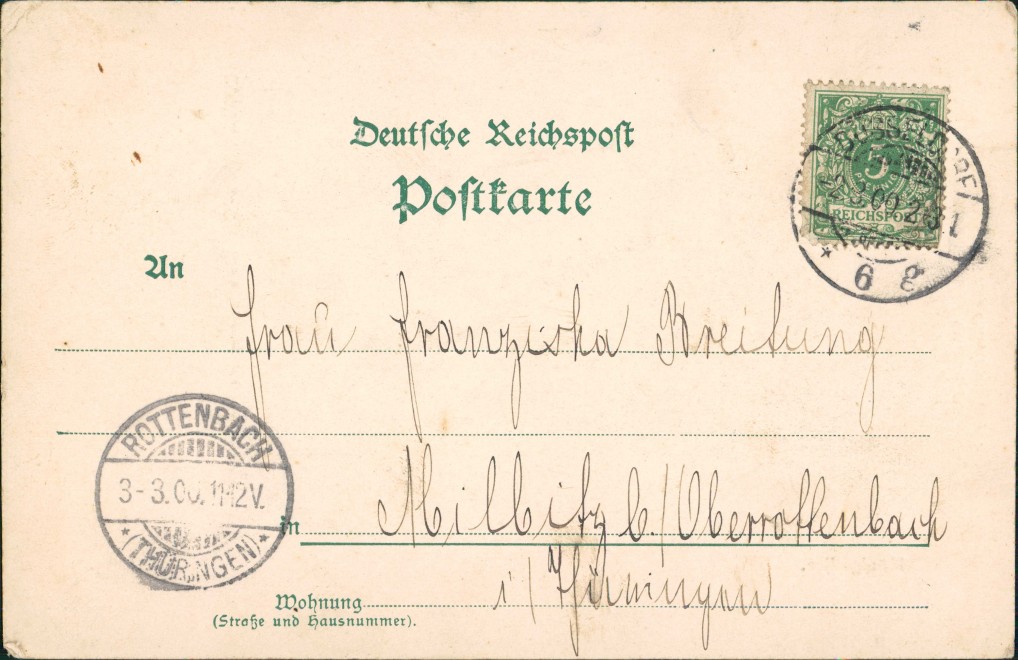 Deutsche Reichspost
Postkarte
5
PFENNIG
REICHSPOST
DÜSSELDORF
6 g
An
Frau Franziska Breitung
ROTTENBACH
3-3.00. 11-12V.
*(THÜRINGEN)*
in Milbitz b/Oberrottenbach
i/Thüringen
Wohnung
(Straße und Hausnummer).